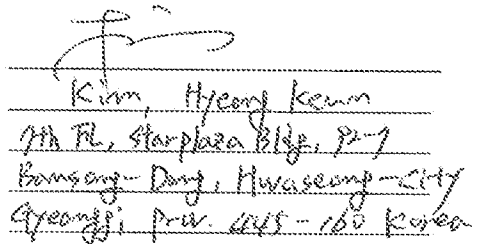 Kim, Hyeong Keum
7th FL, Starplaza Bldg, 92-7
Bansong-Dong, Hwaseong-City
Gyeonggi Prov. 445-160 Korea